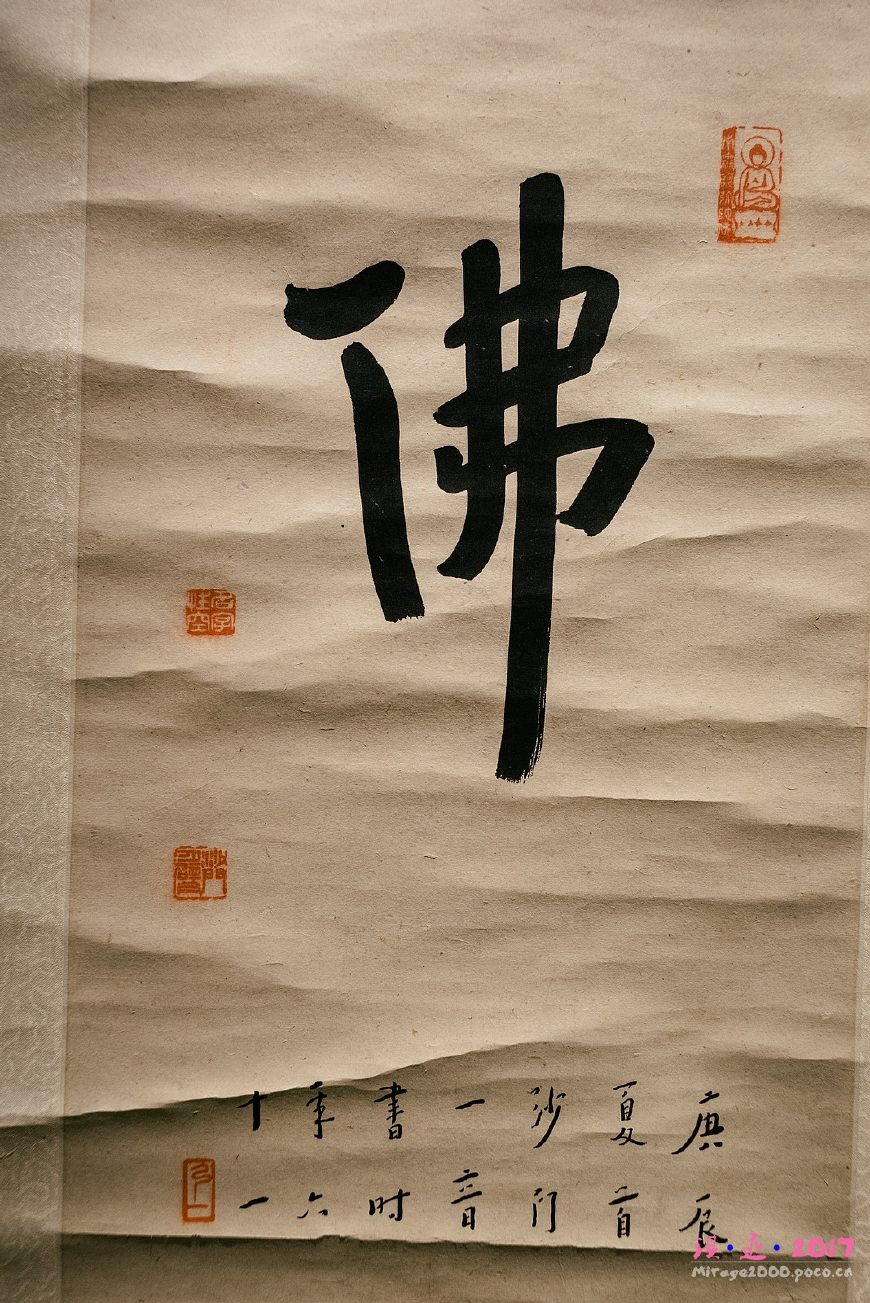 佛
庚辰
夏首
沙门
一音
書时
年六
十一
名字性空
2017
Mirage2000.poco.cn